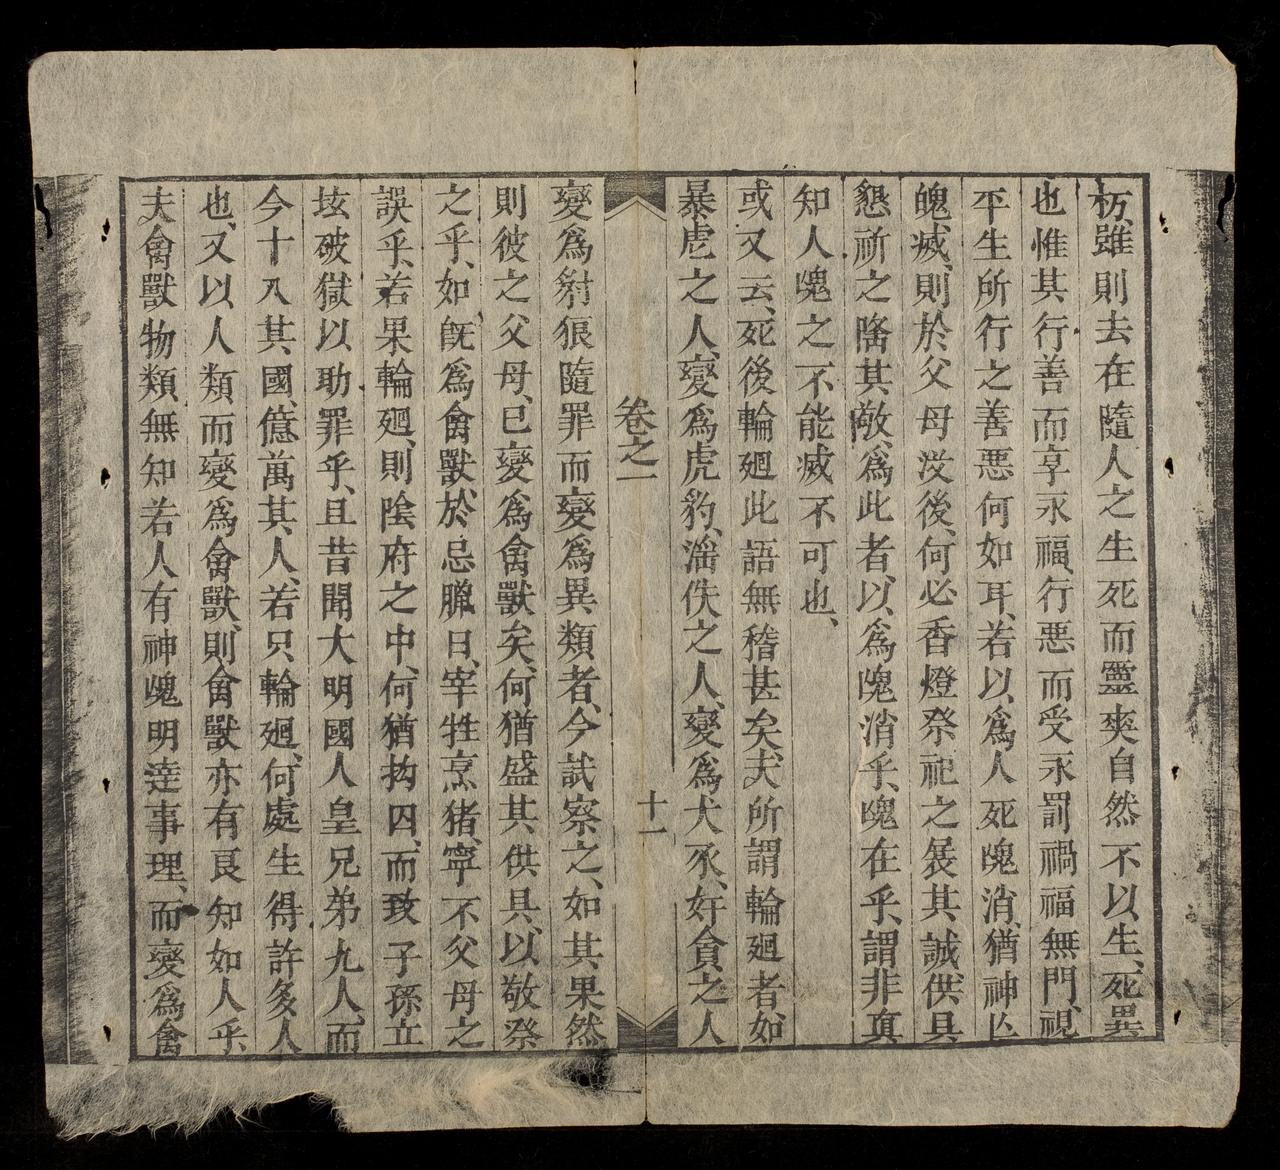 朽、雖則去在隨人之生死而靈爽自然不以生、死異
也惟其行善而享永福、行惡而受永罰禍福無門、視
平生所行之善惡何如耳、若以、爲人死魂消、猶神亾
魄、滅、則於父母歿後、何必香燈祭祀之展其、誠、供、具
懇祈之隆其、敬、爲此者、以、爲魂消乎、魂在乎、謂非真
知人魂之不能滅不可也、
或又云、死後輪廻此語無稽甚矣、夫所謂輪廻者、如
暴虐之人、變爲虎豹、淫佚之人、變爲犬豕、奸貪之人
卷之一
十一
變爲豺狼隨罪而變爲異類者、今試察之、如其、果然
則彼之父母、已變爲禽獸矣、何猶盛其供具、以敬祭
之乎、如、旣爲禽獸、於忌臘日、宰牲烹猪、寧不父母之
誤乎、若果輪廻、則陰府之中、何猶拘囚、而致子孫立
垓破獄以助罪乎、且昔聞大明國人皇兄弟九人、而
今十八其、國、億萬其、人、若只輪廻、何處生得許多人
也、又以、人類而變爲禽獸、則禽獸亦有良知如人乎、
夫禽獸物類無知若人有神魂明達事理、而變爲禽